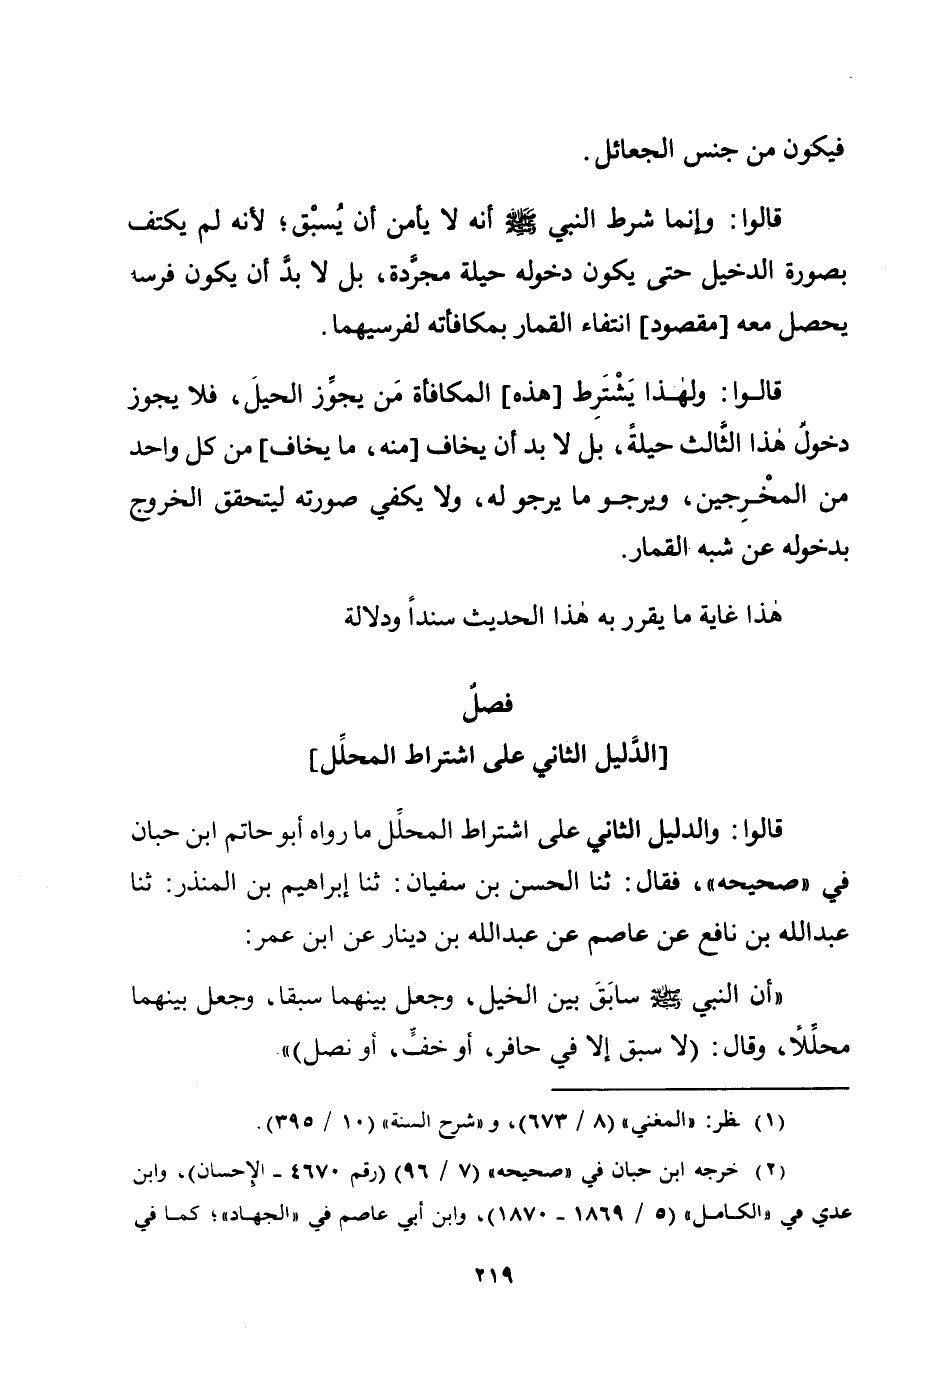 فيكون من جنس الجعائل.
قالوا: وإنما شرط النبي ﷺ أنه لا يأمن أن يُسبْق؛ لأنه لم يكتف
بصورة الدخيل حتى يكون دخوله حيلة مجرَّدة، بل لا بدَّ أن يكون فرسه
يحصل معه [مقصود] انتفاء القمار بمكافأته لفرسيهما.
قالـوا: ولهٰـذا يَشْتَرِط [هذه] المكافأة مَن يجوِّز الحيلَ، فلا يجوز
دخولُ هٰذا الثَّالث حيلةً، بل لا بد أن يخاف [منه، ما يخاف] من كل واحد
من المخْـرِجين، ويرجـو ما يرجو له، ولا يكفي صورته ليتحقق الخروج
بدخوله عن شبه القمار.
هٰذا غاية ما يقرر به هٰذا الحديث سنداً ودلالة
فصلٌ
[الدَّليل الثاني على اشتراط المحلِّل]
قالوا: والدليل الثاني على اشتراط المحلِّل ما رواه أبو حاتم ابن حبان
في «صحيحه»، فقال: ثنا الحسن بن سفيان: ثنا إبراهيم بن المنذر: ثنا
عبدالله بن نافع عن عاصم عن عبدالله بن دينار عن ابن عمر:
«أن النبي ﷺ سابَقَ بين الخيل، وجعل بينهما سبقا، وجعل بينهما
محلِّلًا، وقال: (لا سبق إلا في حافر، أو خفٍّ، أو نصل)».
(١) ظر: «المغني» (٨ / ٦٧٣)، و«شرح السنة» (١٠ / ٣٩٥).
(٢) خرجه ابن حبان في «صحيحه» (٧ / ٩٦) (رقم ٤٦٧٠ - الإحسان)، وابن
عدي في «الكامـل» (٥ / ١٨٦٩ - ١٨٧٠)، وابن أبي عاصم في «الجهـاد»؛ كمـا في
٢١٩